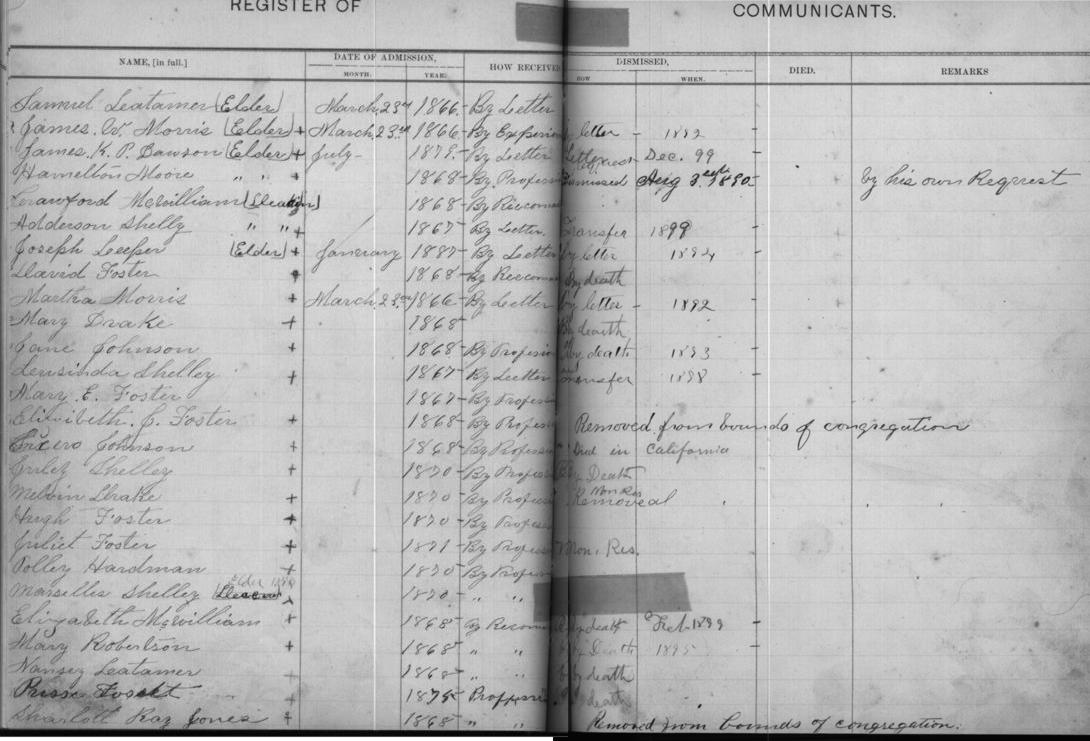 REGISTER OF COMMUNICANTS.
NAME, [in full.] DATE OF ADMISSION, HOW RECEIVED DISMISSED, DIED. REMARKS
MONTH. YEAR. HOW WHEN.
Samuel Leatamer [Elder] March, 23rd 1866. By Letter
James. W. Morris [Elder] + March, 23rd 1866 - By letter - 1892
James. K. P. Dawson [Elder] + July - 1879. - By Letter Letter Dec. 99
Hamelton Moore " " + 1868 - By Dismissed Aug 3 1890 by his own Request
Crawford McWilliam 1868 - By
Adderson Shelly " " + 1867 - By Letter. Transfer 1899
Joseph Leeper [Elder] + January 1887 - By Letter by letter 1894
David Foster 1868 - By By death
Martha Morris + March, 23rd 1866 - By Letter by letter - 1892
Mary Drake + 1868 By death
Jane Johnson + 1868 - By by death 1893
Shelley + 1867 - By Letter Transfer 1898
Mary. E. Foster 1867 - By
Elizibeth. J. Foster + 1868 - By Removed from bounds of congregation
Cicero Johnson + 1868 - By Died in California
Shelley + 1870 - By By Death
Melvin Drake + 1870 - By Non Res Removeal
Hugh Foster + 1870 - By
Juliet Foster + 1871 - By Non. Res.
Polley Hardman + 1870 - By
Elder
Marselles Shelley 1870 - " "
Elizabeth McWilliam + 1868 - By by death Feb 1899
Mary Robertson + 1868 - " " by Death 1895
Nansey Leatamer + 1868 - " " by death
+ 1875 death
Sharlott Ray Jones + 1868 - " " Removed from bounds of congregation.